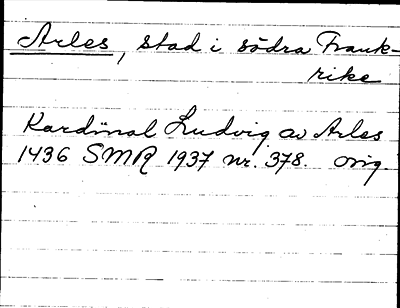 Arles, stad i södra Frank-
rike
Kardinal Ludvig av Arles
1436 SMR 1937 nr. 378. orig.